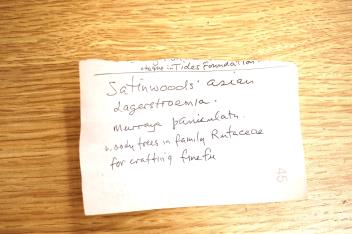 in Tides Foundation.
Satinwoods' asian
Lagerstroemia.
Murraya paniculata.
woody trees in family Rutaceae
for crafting fine fu
45